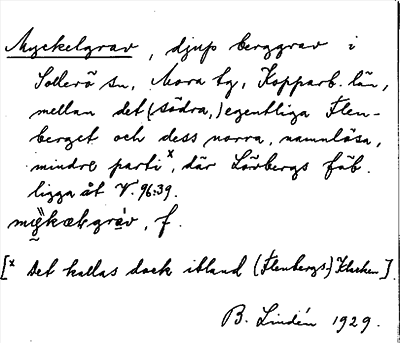 Myckelgrav, djup berggrav i
Sollerö sn, Mora tg, Kopparb. län,
mellan det (södra,) egentliga Flen-
berget och dess norra, namnlösa,
mindre parti x, där Lövbergs fäb.
ligga åt V. 96:39.
grav, f.
[x Det kallas dock ibland (Flenbergs-) Klacken].
B. Lindén 1929.